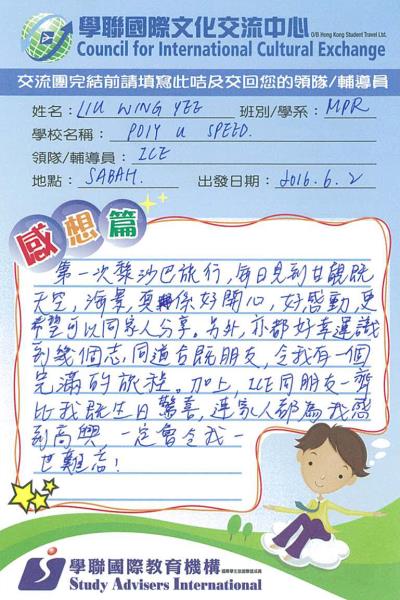 學聯國際文化交流中心 O/B Hong Kong Student Travel Ltd.
Council for International Cultural Exchange
交流團完結前請填寫此咭及交回您的領隊/輔導員
姓名：LIU WING YEE 班別/學系：MPR
學校名稱：POLY U SPEED.
領隊/輔導員：ICE
地點：SABAH. 出發日期：2016.6.2
感想篇
第一次黎沙巴旅行，每日見到甘靚既
天空，海景，真係好開心，好感動，更
希望可以同家人分享。另外，亦都好幸運識
到幾個志同道合既朋友，令我有一個
完滿的旅程。加上，ICE同朋友一齊
比我既生日驚喜，連家人都為我感
到高興，一定會令我一
世難忘！
學聯國際教育機構
Study Advisers International